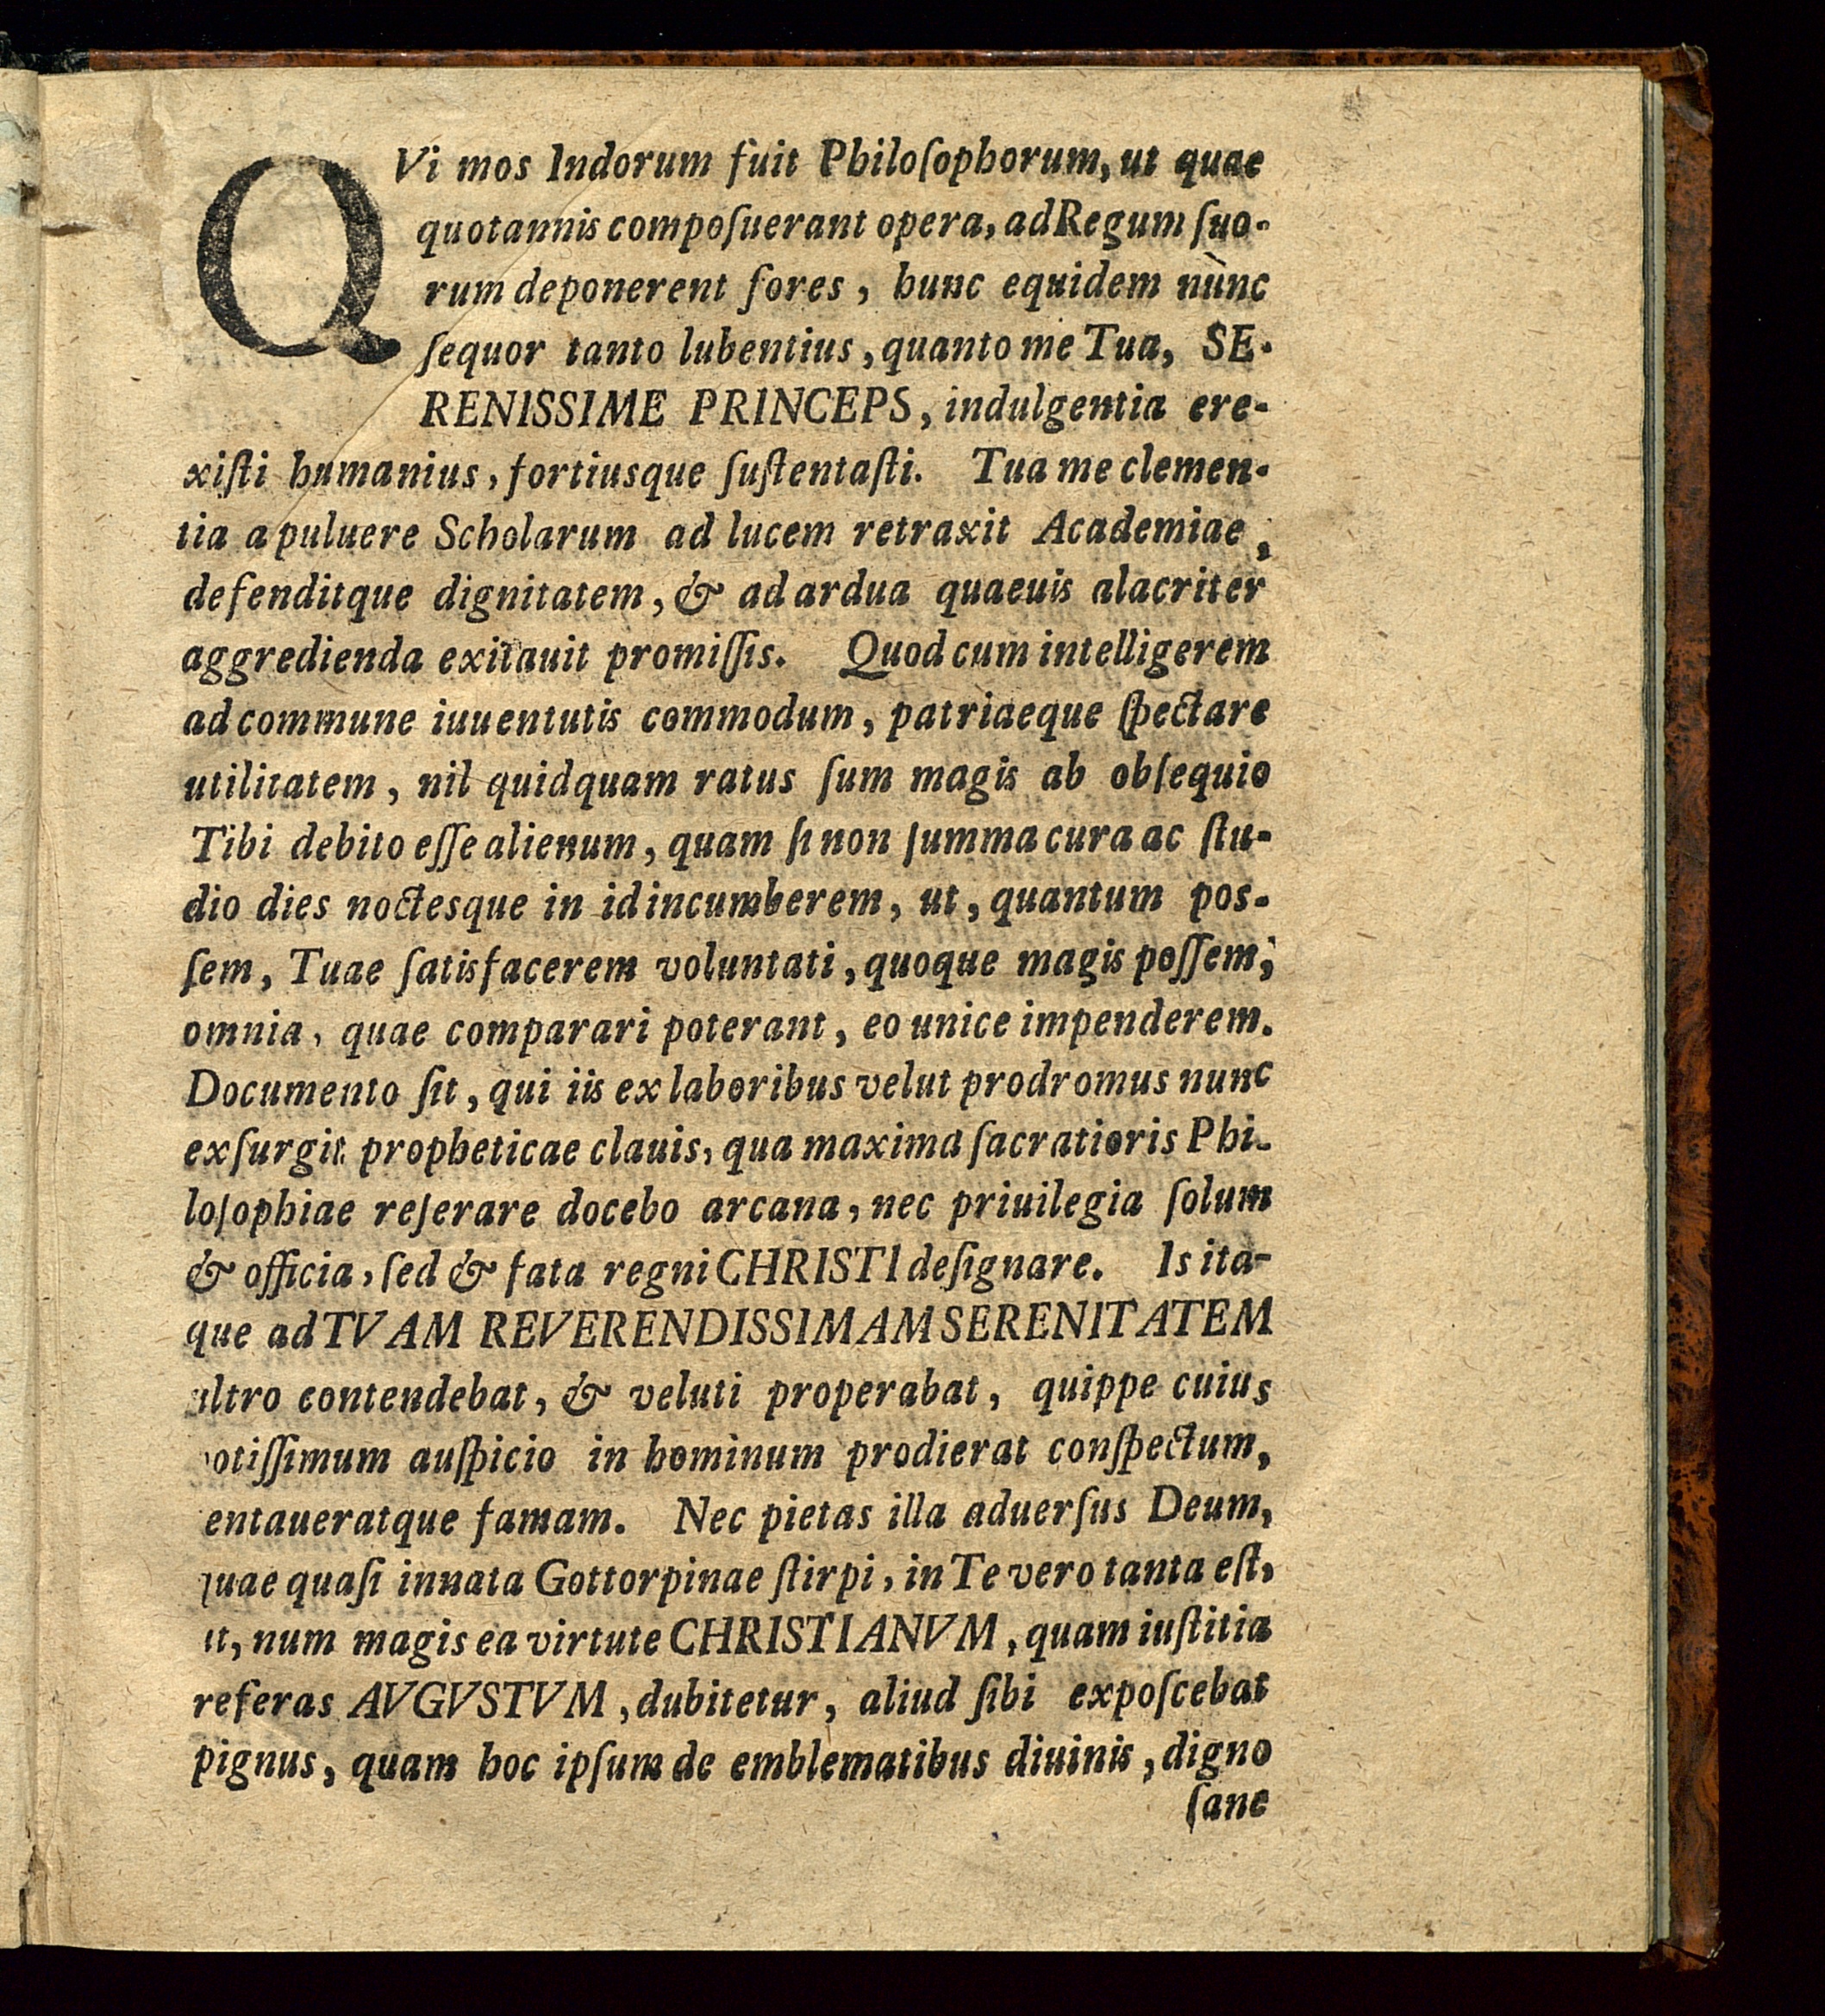 QVi mos Indorum fuit Philoſophorum, ut quae
quotannis compoſuerant opera, ad Regum ſuo-
rum deponerent fores, hunc equidem nùnc
ſequor tanto lubentius, quanto me Tua, SE-
RENISSIME PRINCEPS, indulgentia ere-
xiſti humanius, fortiusque ſuſtentaſti. Tua me clemen-
tia a puluere Scholarum ad lucem retraxit Academiae,
defenditque dignitatem, & ad ardua quaeuis alacriter
aggredienda exitauit promiſſis. Quod cum intelligerem
ad commune iuuentutis commodum, patriaeque ſpectare
utilitatem, nil quidquam ratus ſum magis ab obſequio
Tibi debito eſſe alienum, quam ſi non ſumma cura ac ſtu-
dio dies noctesque in id incumberem, ut, quantum pos-
ſem, Tuae ſatisfacerem voluntati, quoque magis poſſem,
omnia, quae comparari poterant, eo unice impenderem.
Documento ſit, qui iis ex laboribus velut prodromus nunc
exſurgit propheticae clauis, qua maxima ſacratioris Phi-
loſophiae reſerare docebo arcana, nec priuilegia ſolum
& officia, ſed & fata regni CHRISTI deſignare. Is ita-
que ad TVAM REVERENDISSIMAM SERENITATEM
ultro contendebat, & veluti properabat, quippe cuius
potiſſimum auſpicio in hominum prodierat conſpectum,
tentaueratque famam. Nec pietas illa aduerſus Deum,
quae quaſi innata Gottorpinae ſtirpi, in Te vero tanta eſt,
ut, num magis ea virtute CHRISTIANVM, quam iuſtitia
referas AVGVSTVM, dubitetur, aliud ſibi expoſcebat
pignus, quam hoc ipſum de emblematibus diuinis, digno
ſane